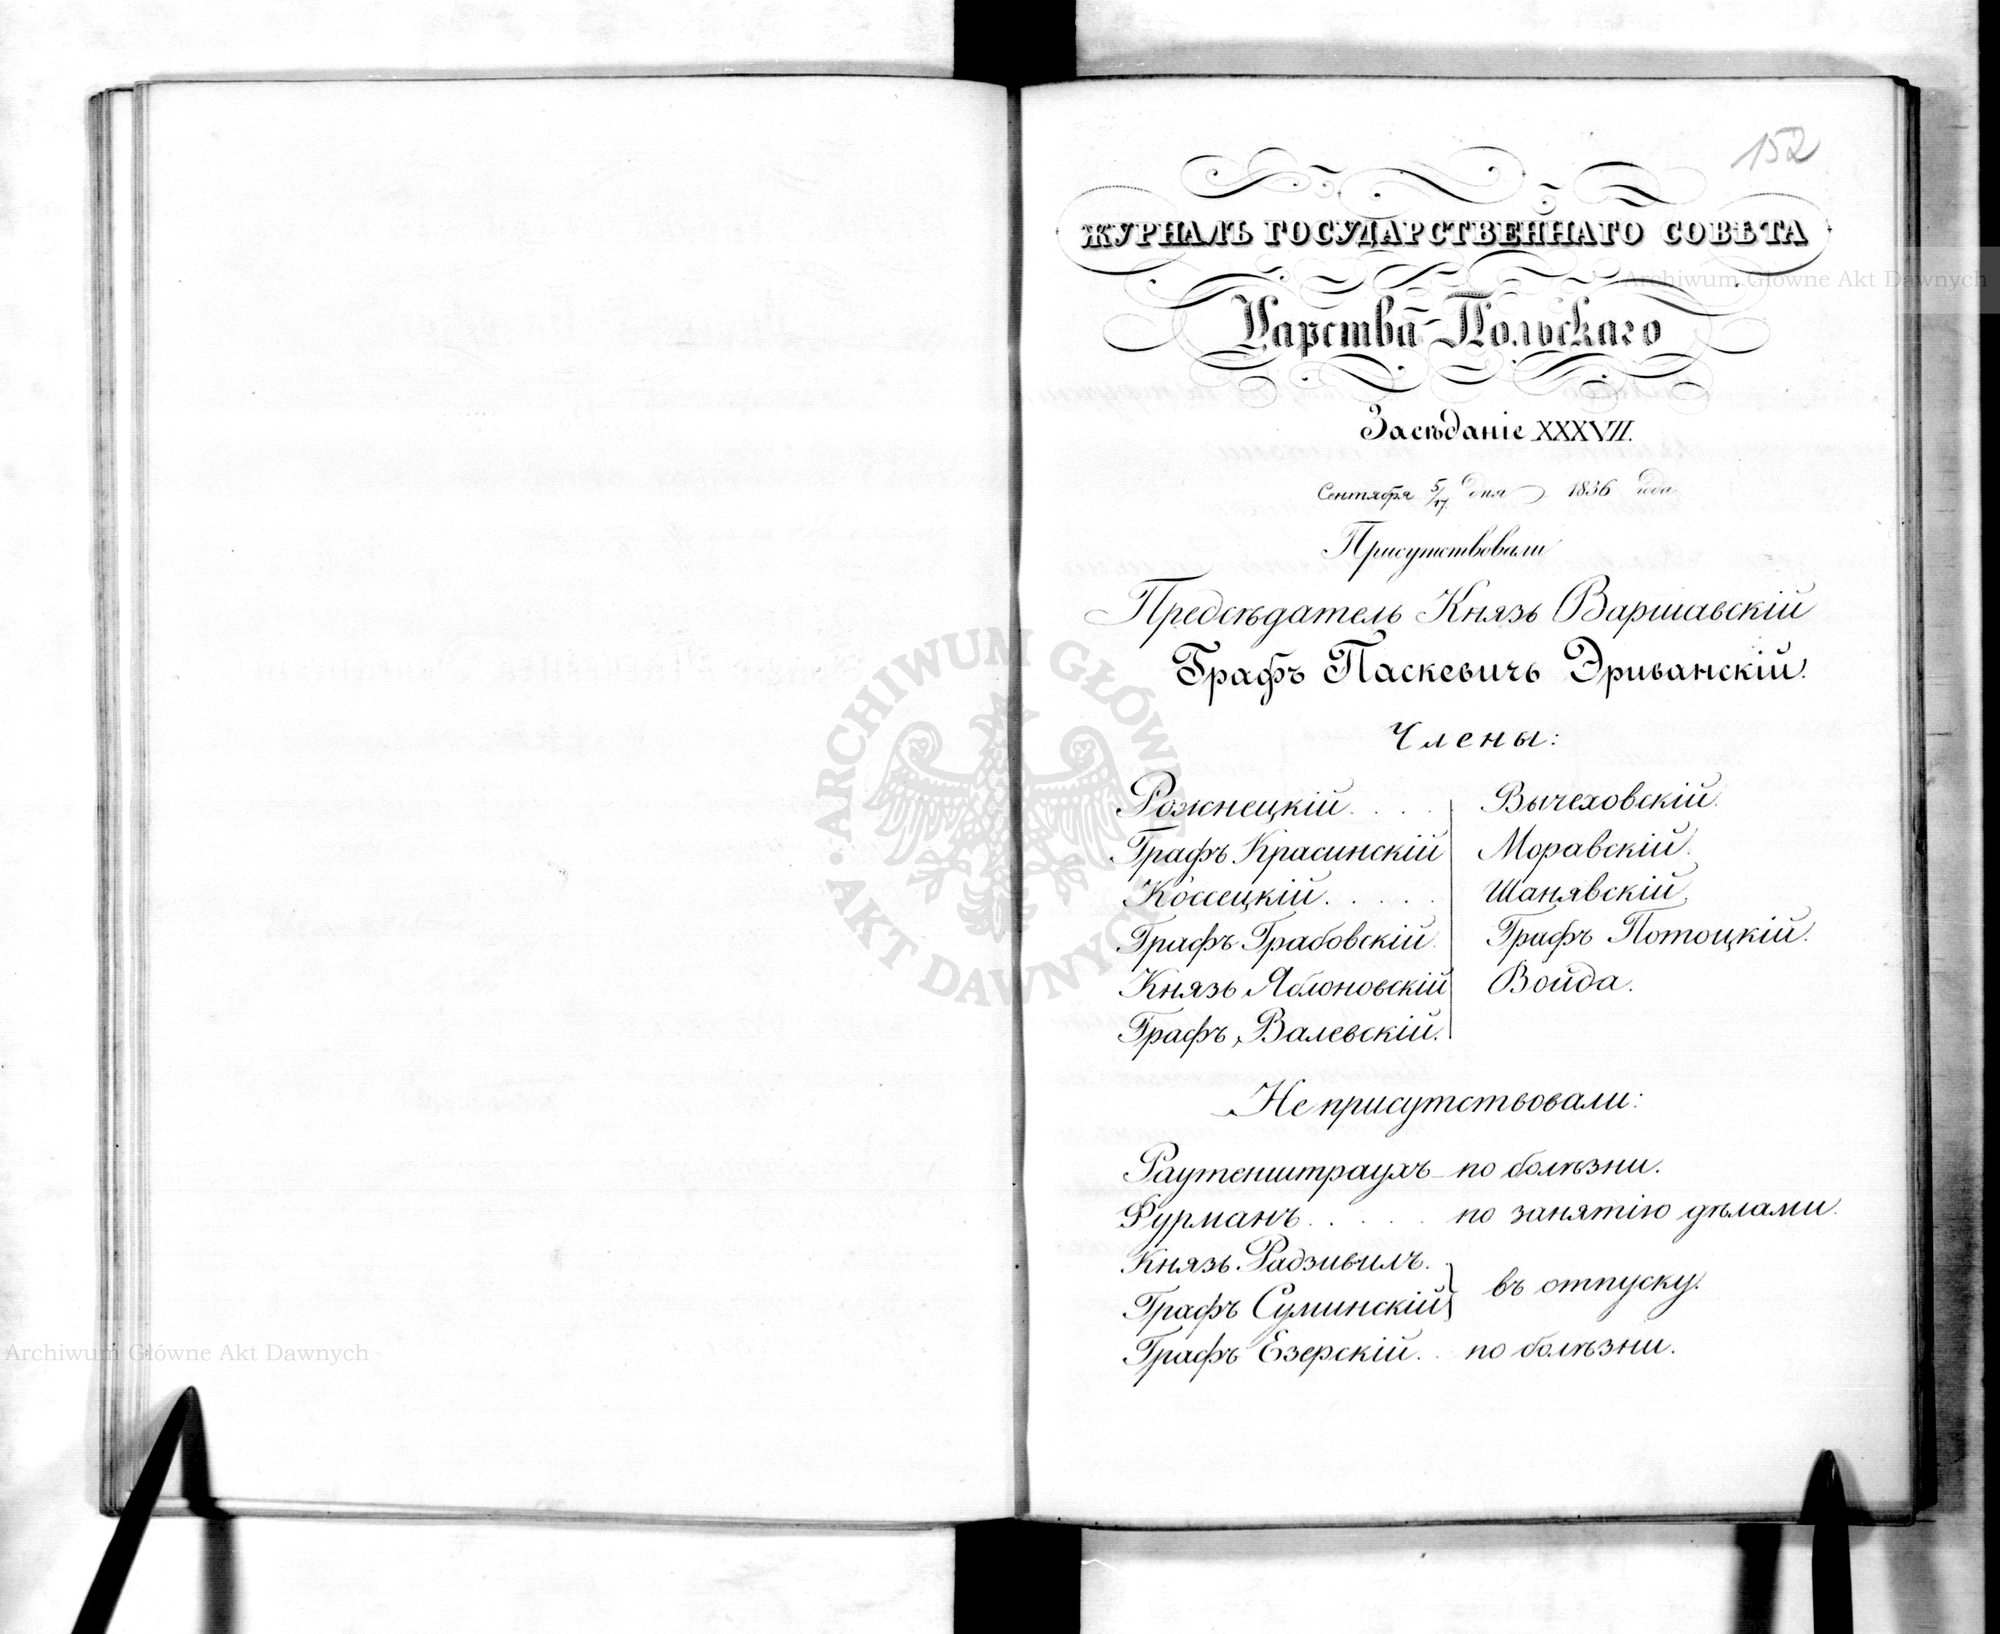 152
ЖУРНАЛЪ ГОСУДАРСТВЕННАГО СОВѢТА
Царства Польскаго
Засѣданіе XXXVII.
Сентября 5/17 дня 1836 года
Присутствовали
Предсѣдатель Князь Варшавскій
Графъ Паскевичъ Эриванскій.
Члены:
Рожнецкій . . . . Вычеховскій.
Графъ Красинскій Моравскій.
Коссецкій . . . . . Шанявскій.
Графъ Грабовскій. Графъ Потоцкій.
Князь Яблоновскій Война.
Графъ Валевскій.
Не присутствовали:
Раутенштраухъ по болѣзни.
Фурманъ . . . . . по занятію дѣлами.
Князь Радзивилъ.
въ отпуску.
Графъ Суминскій
Графъ Езерскій . . по болѣзни.
ARCHIWUM GŁÓWNE AKT DAWNYCH
Archiwum Główne Akt Dawnych
Archiwum Główne Akt Dawnych